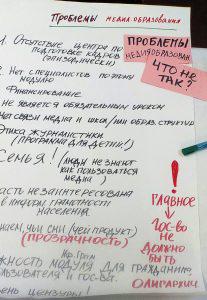 Проблемы медиа образования
1. Отсутствие центра по
подготовке кадров
(эпизодически)
2. Нет специалистов по этому
модулю
Финансирование
не является обязательным уроком
Нет связи медиа и школ/или образ. структур
Этика журналистики
(программа для детей!)
Семья! (люди не знают
как пользоваться
медиа)
власть не заинтересована
в медиа грамотности
населения
чьи СМИ (чей продукт)
(прозрачность)
важность модуля для граждан,
пользователя и гос-ва.
цензуры!
ПРОБЛЕМЫ
МЕДИАОБРАЗОВАН
ЧТО НЕ
ТАК?
!
ГЛАВНОЕ
ГОС-ВО
НЕ
ДОЛЖНО
БЫТЬ
ОЛИГАРХИЧ